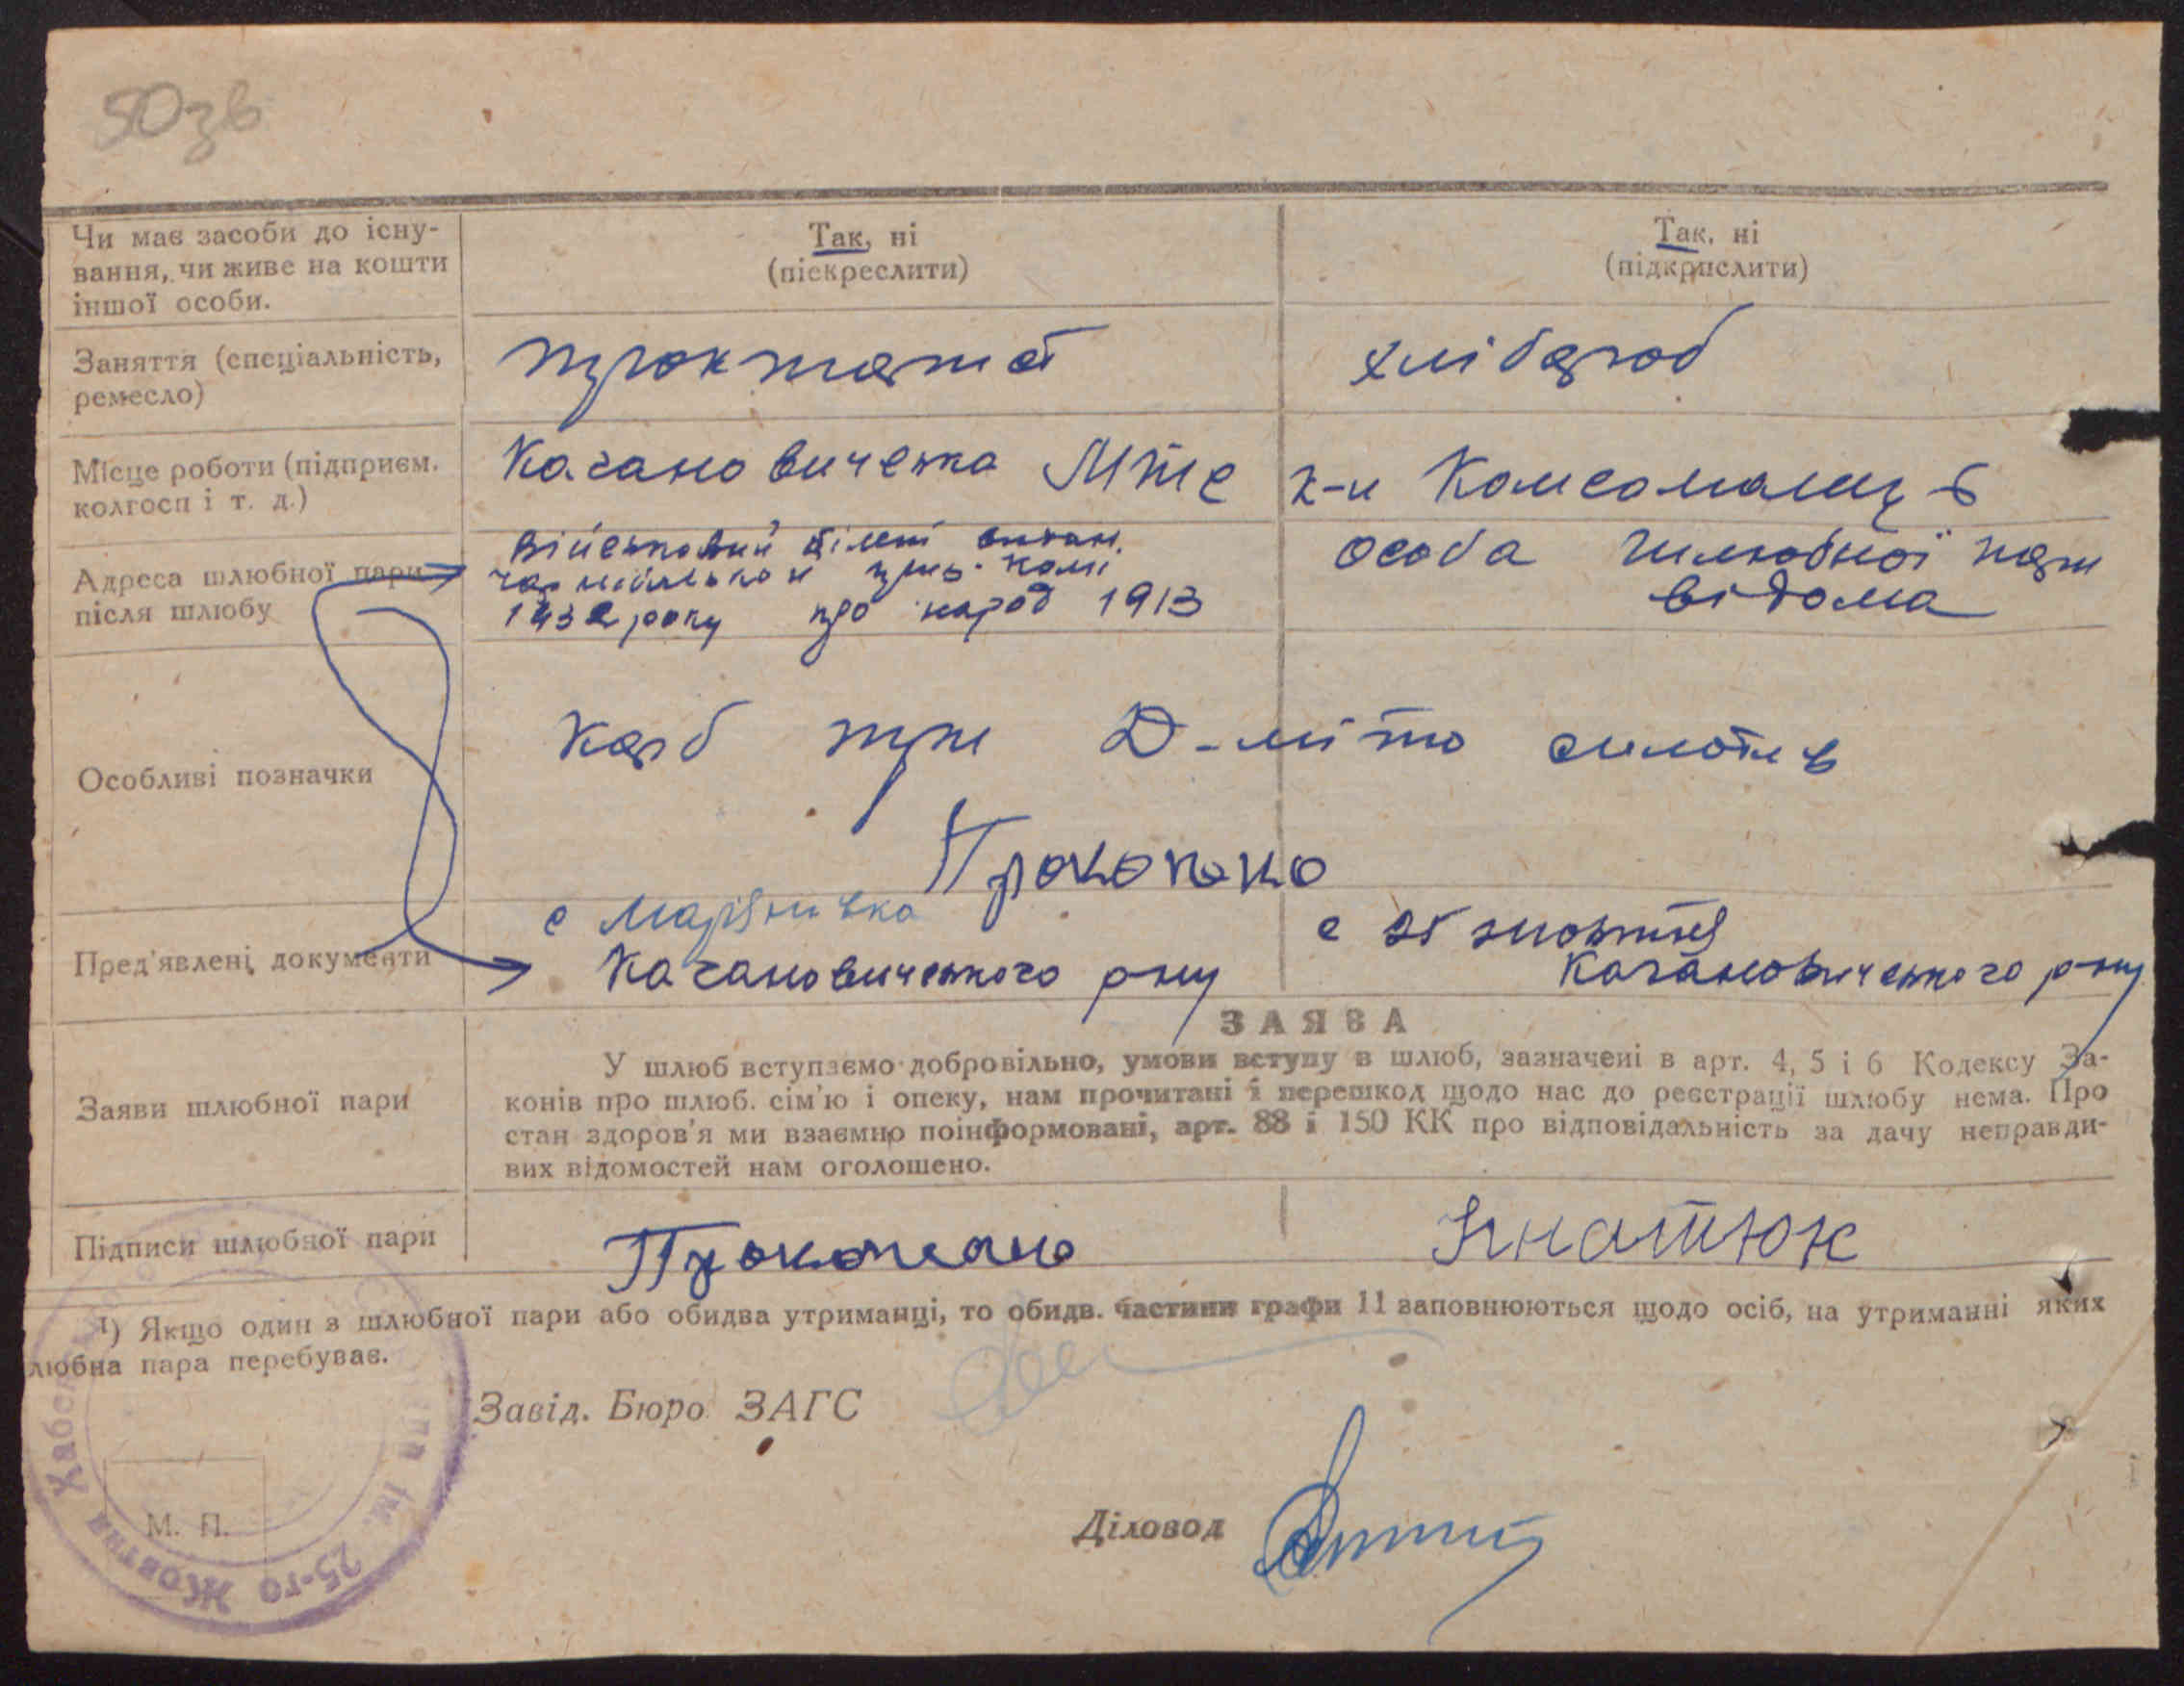 50зв
Чи має засоби до існу-
вання, чи живе на кошти
іншої особи.
Так, ні
(піскреслити)
Так, ні
(підкрпслити)
Заняття (спеціальність,
ремесло)
хлібороб
Місце роботи (підприєм.
колгосп і т. д.)
Кагановичська МТС
к-п Комсомолець
Адреса шлюбної пари
після шлюбу
Військовий білет видан.
1932 року про народ 1913
особа шлюбної пари
відома
Особливі позначки
Карб три
Прокопенко
Пред'явлені документи
с Мар'янівка
Кагановичського р-ну
с 25 жовтня
Кагановичського р-ну
Заяви шлюбної пари
ЗАЯВА
У шлюб вступаємо добровільно, умови вступу в шлюб, зазначені в арт. 4, 5 і 6 Кодексу За-
конів про шлюб. сім'ю і опеку, нам прочитані і перешкод щодо нас до реєстрації шлюбу нема. Про
стан здоров'я ми взаємно поінформовані, арт. 88 і 150 КК про відповідальність за дачу неправди-
вих відомостей нам оголошено.
Підписи шлюбної пари
Прокопенко
Ігнатюк
¹) Якщо один з шлюбної пари або обидва утриманці, то обидв. частини графи 11 заповнюються щодо осіб, на утриманні яких
любна пара перебуває.
Завід. Бюро ЗАГС
М. П.
ім. 25-го Жовтня
Діловод